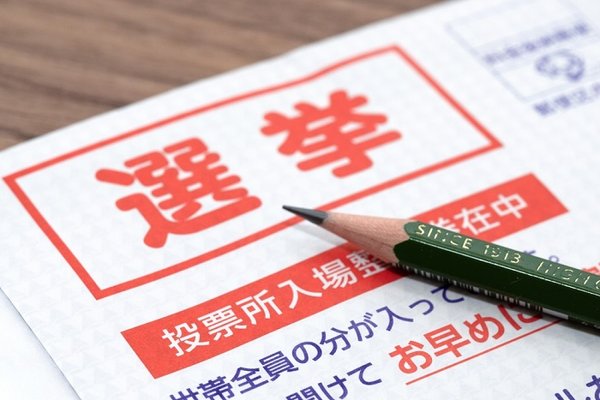 選挙
投票所入場整 在中
世帯全員の分が入って す。
開けて お早めに
SINCE 1913